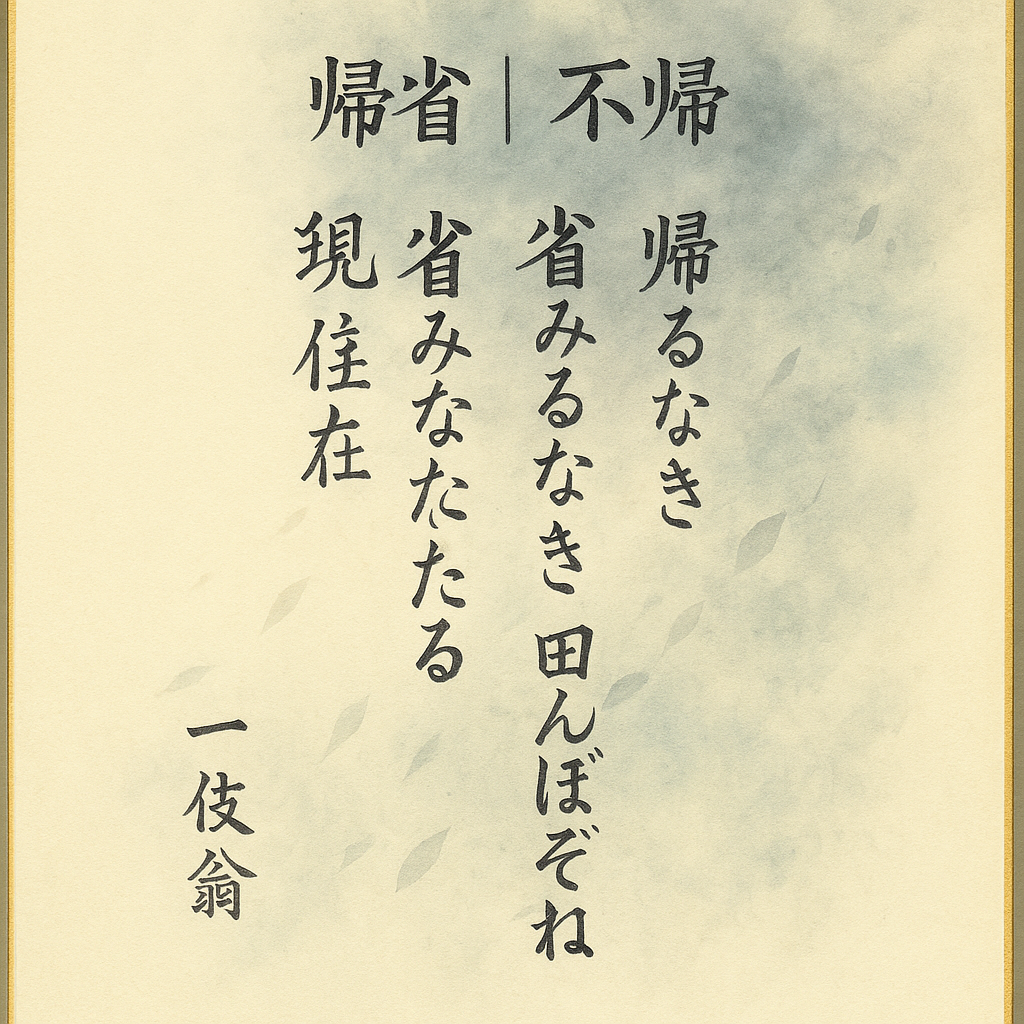 帰省｜不帰
帰るなき
省みるなき 田んぼぞね
省みなたたる
現住在
一伎翁